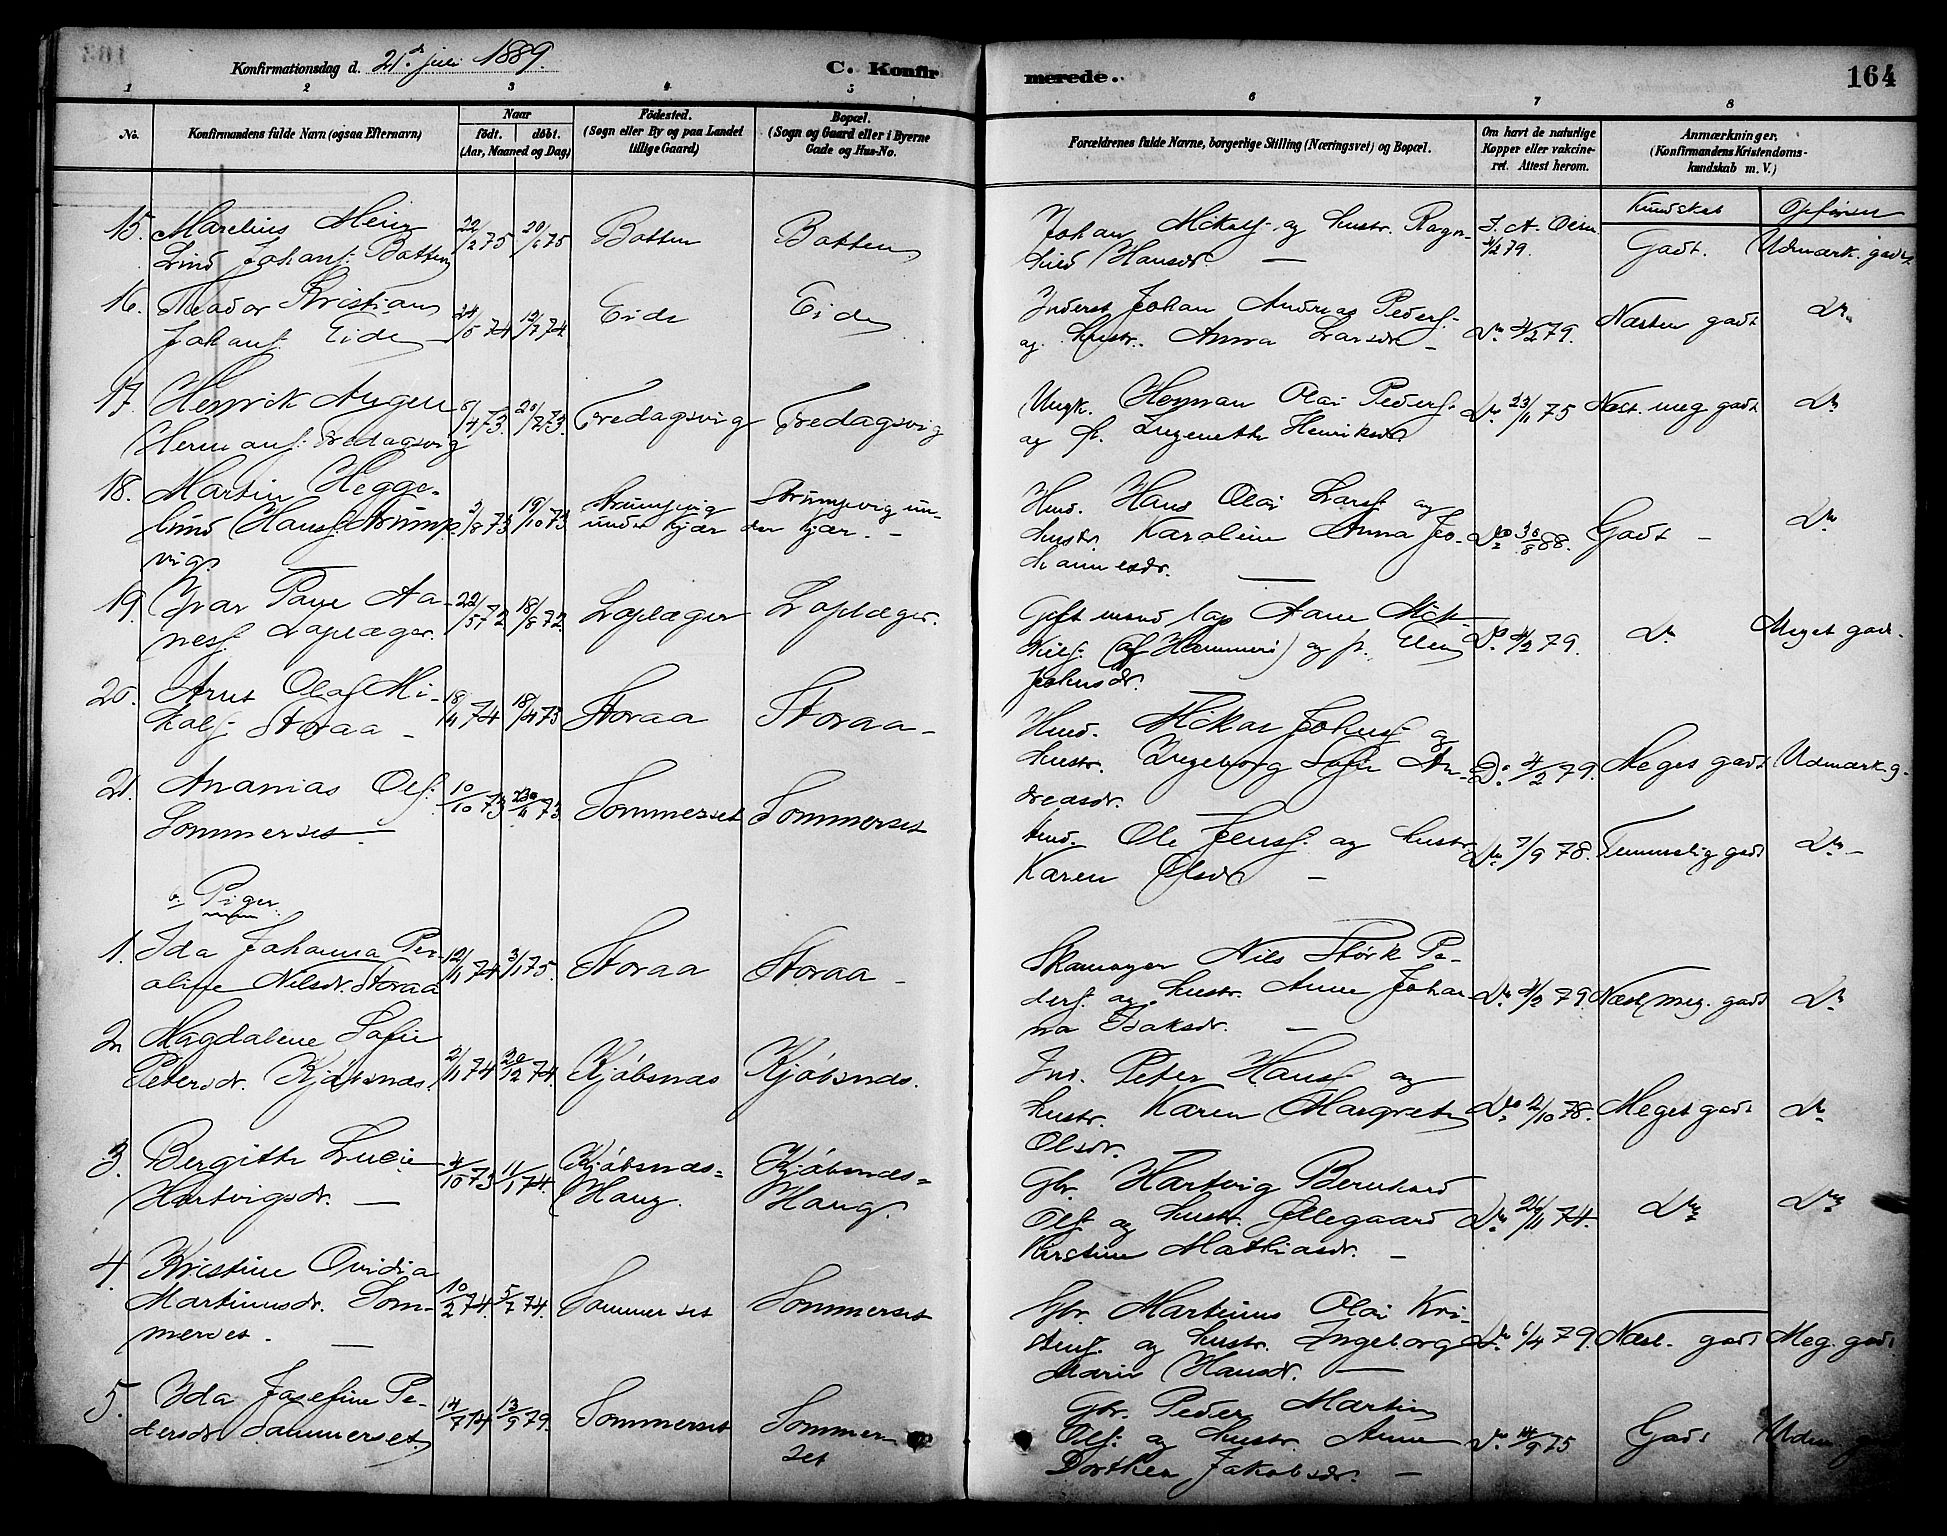 Konfirmationsdag d. 21de juli 1889.
C. Konfirmerede.
164
1 2 3 4 5 6 7 8
No.
Konfirmandens fulde Navn (ogsaa Efternavn)
Naar
født. døbt.
(Aar, Maaned og Dag)
Fødested.
(Sogn eller By og paa Landet
tillige Gaard)
Bopæl.
(Sogn og Gaard eller i Byerne
Gade og Hus-No.
Forældrenes fulde Navne, borgerlige Stilling (Næringsvei) og Bopæl.
Om havt de naturlige
Kopper eller vakcine-
ret. Attest herom.
Anmærkninger.
(Konfirmandens Kristendoms-
kundskab m. V.)
Kundskab
15. Marelius Meier
Lind Johans. Botten
22/2 75 20/6 75 Botten Botten
Johan Mikals. og hustr. Ragn-
hild Hansdr. —
4/2 79. Godt. Udmærk. godt
16. Theodor Kristian
Johans. Eide
24/5 74 12/7 74 Eide Eide
Inderst Johan Andreas Peders.
og hustr. Anna Larsdr. —
Do 4/2 79. Næsten godt Do
17. Henrik Angell
Hermans. Fredagsvig
8/4 73. 20/7 73. Fredagsvig Fredagsvig
Ungk. Herman Olai Peders.
og p. Ingeneth Henriksdr.
Do 23/11 75 Næst. meg. godt Do
18. Martin Hegge-
lund Hans. Strump-
vig
2/8 73 19/10 73 Strumpvig
under Kjær Strumpvig un-
der Kjær. —
Hmd. Hans Olai Lars. og
hustr. Karoline Anna Jo-
hannesdr. —
Do 30/8 88. Godt — Do
19. Ivar Paye Aa-
nes. Laplæger.
22/5 72 18/8 72. Laplæger Laplæger.
Gift mand lap Aane Mik-
kels. (af Hammeri) og p. Elen
Johnsdr.
Do 4/2 79. Do Meget godt.
20. Arnt Olaf Mi-
kals. Storaa —
18/11 74 18/4 73 Storaa Storaa —
Hmd. Mikal Johns. og
hustr. Ingeborg Sofie An-
dreasdr. —
Do 4/2 79. Meget godt Udmærk. g.
21. Ananias Ols.
Sommerset —
10/10 73 /11 73 Sommerset Sommerset
Hmd. Ole Jens. og hustr.
Karen Olsdr —
Do 7/9 78. Temmelig godt Do —
b. Piger.
1. Ida Johanna Pe-
aline Nilsdr. Storaa
12/11 74 3/1 75. Storaa Storaa —
Skomager Nils Størk Pe-
ders. og hustr. Anne Johan
na Isaksdr. —
Do 4/2 79. Næst meg. godt Do
2. Magdalene Sofie
Petersdr. Kjøbsnæs.
2/11 74 20/12 74. Kjøbsnæs Kjøbsnæs.
Ind. Peter Hans. og
hustr. Karen Margrete
Olsdr.
Do 2/10 78. Meget godt Do
3. Bergitte Lucie
Hartvigsdr. —
4/10 73 11/1 74. Kjøbsnæs=
Haug. Kjøbsnæs=
Haug.
Gbr. Hartvig Bernhard
Ols. og hustr. Ollegaard
Kirstine Mathiasdr. —
Do 26/11 74. Do Do
4. Kristine Ovidia
Martinusdr. Som-
merset. —
10/2 74. 5/7 74. Sommerset Sommerset
Gbr. Martinus Olai Kri-
stens. og hustr. Ingeborg
Marie Hansdr. —
Do 6/4 79. Næst. godt Meg. godt
5. Ida Josefine Pe-
dersdr. Sommerset
14/7 74 13/9 79. Sommerset Sommer
set
Gbr. Peder Martin
Ols. og hustr. Anne
Dorthea Jakobsdr. —
Do 14/9 75 Godt